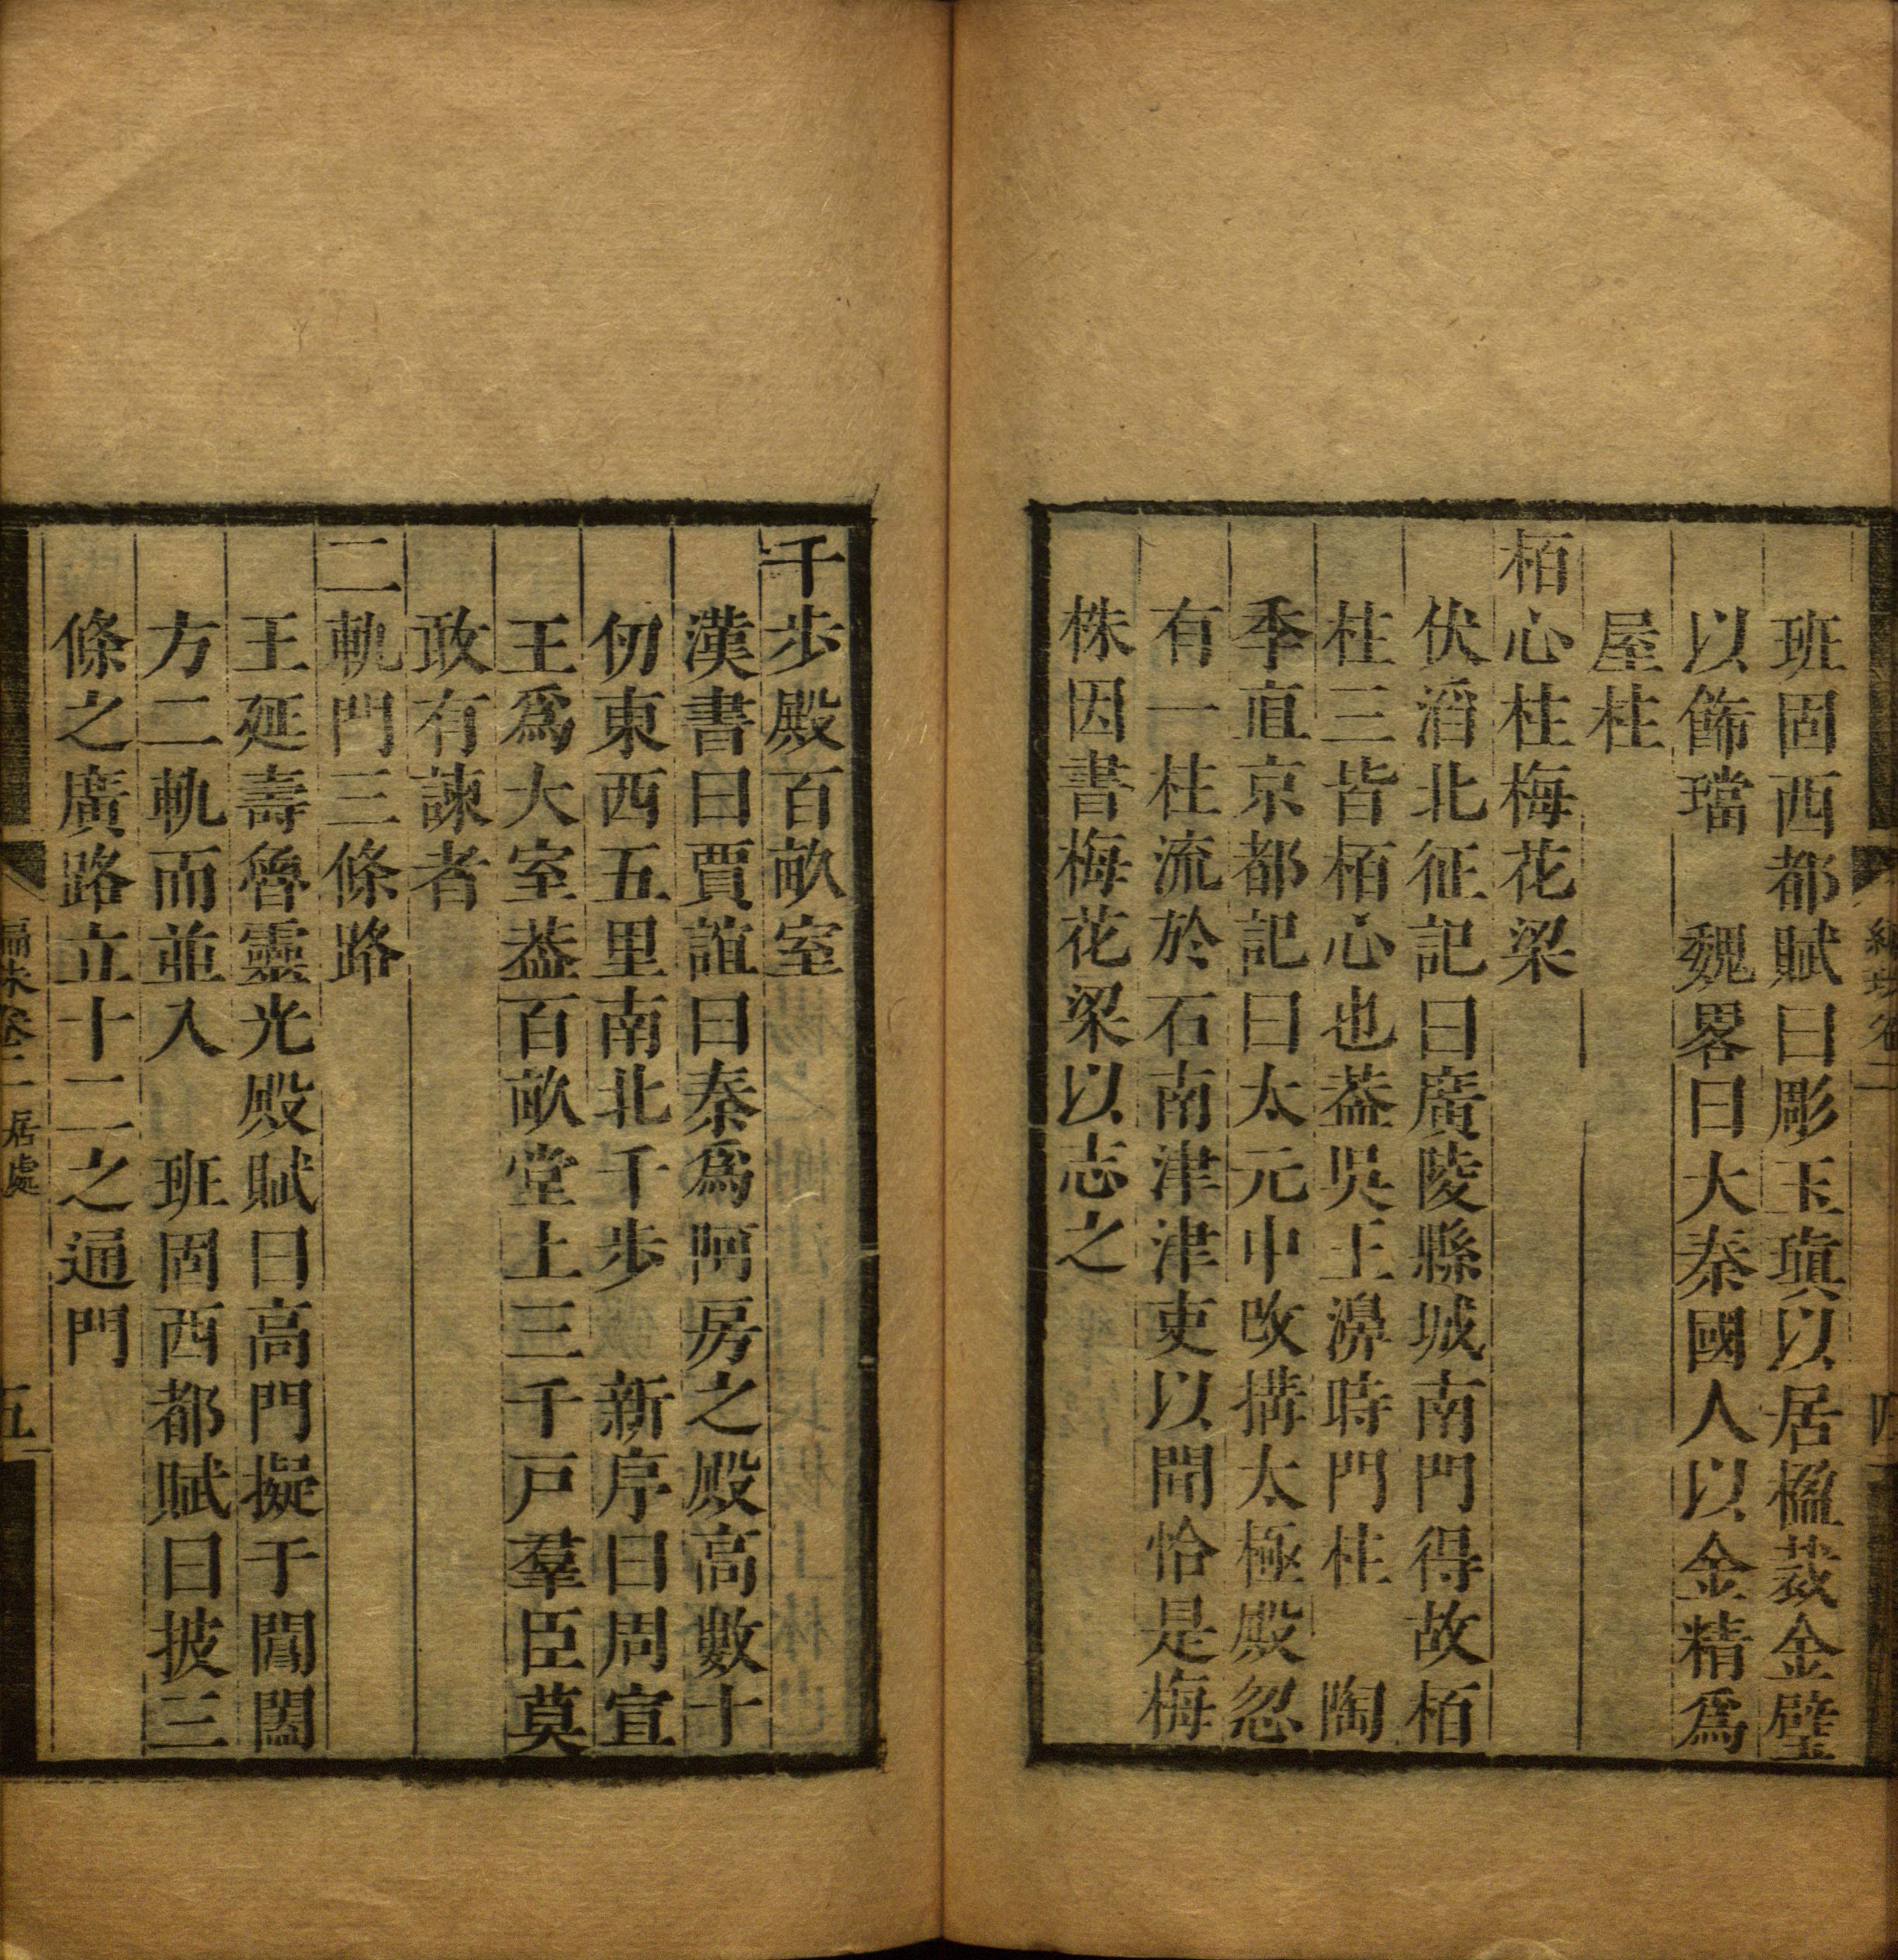 班固西都賦曰彫玉瑱以居楹裁金璧
以飾璫　魏畧曰大秦國人以金精爲
屋柱
栢心柱梅花梁
伏滔北征記曰廣陵縣城南門得故栢
柱三皆栢心也葢吳王濞時門柱　陶
季直京都記曰太元中改搆太極殿忽
有一柱流於石南津津吏以聞恰是梅
株因書梅花梁以志之
千步殿百畝室
漢書曰賈誼曰秦爲阿房之殿高數十
仞東西五里南北千步　新序曰周宣
王爲大室葢百畝堂上三千戸羣臣莫
敢有諫者
二軌門三條路
王延壽魯靈光殿賦曰高門擬于閶闔
方二軌而並入　班固西都賦曰披三
條之廣路立十二之通門
編朱卷二　居處　五